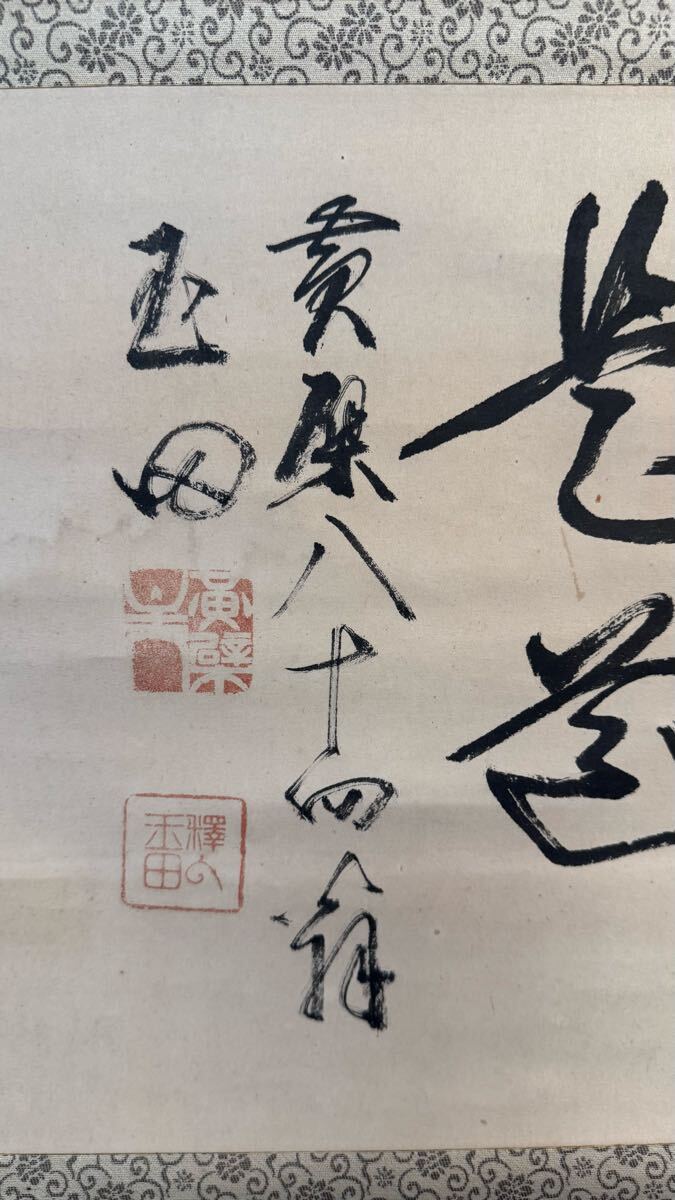 是道
黄檗八十四翁
玉田
黄檗
釋
玉田